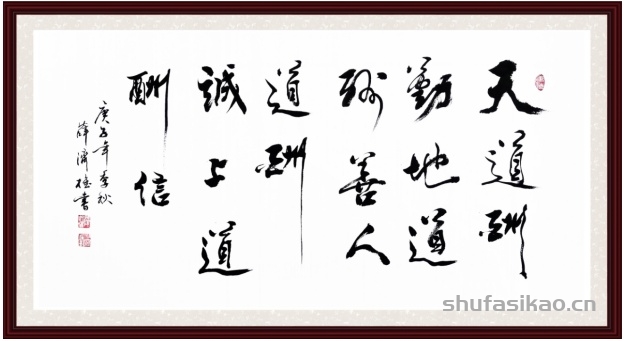 天道酬
勤地道
酬善人
道酬
誠上道
酬信
庚子年季秋
薛書
shufasikao.cn